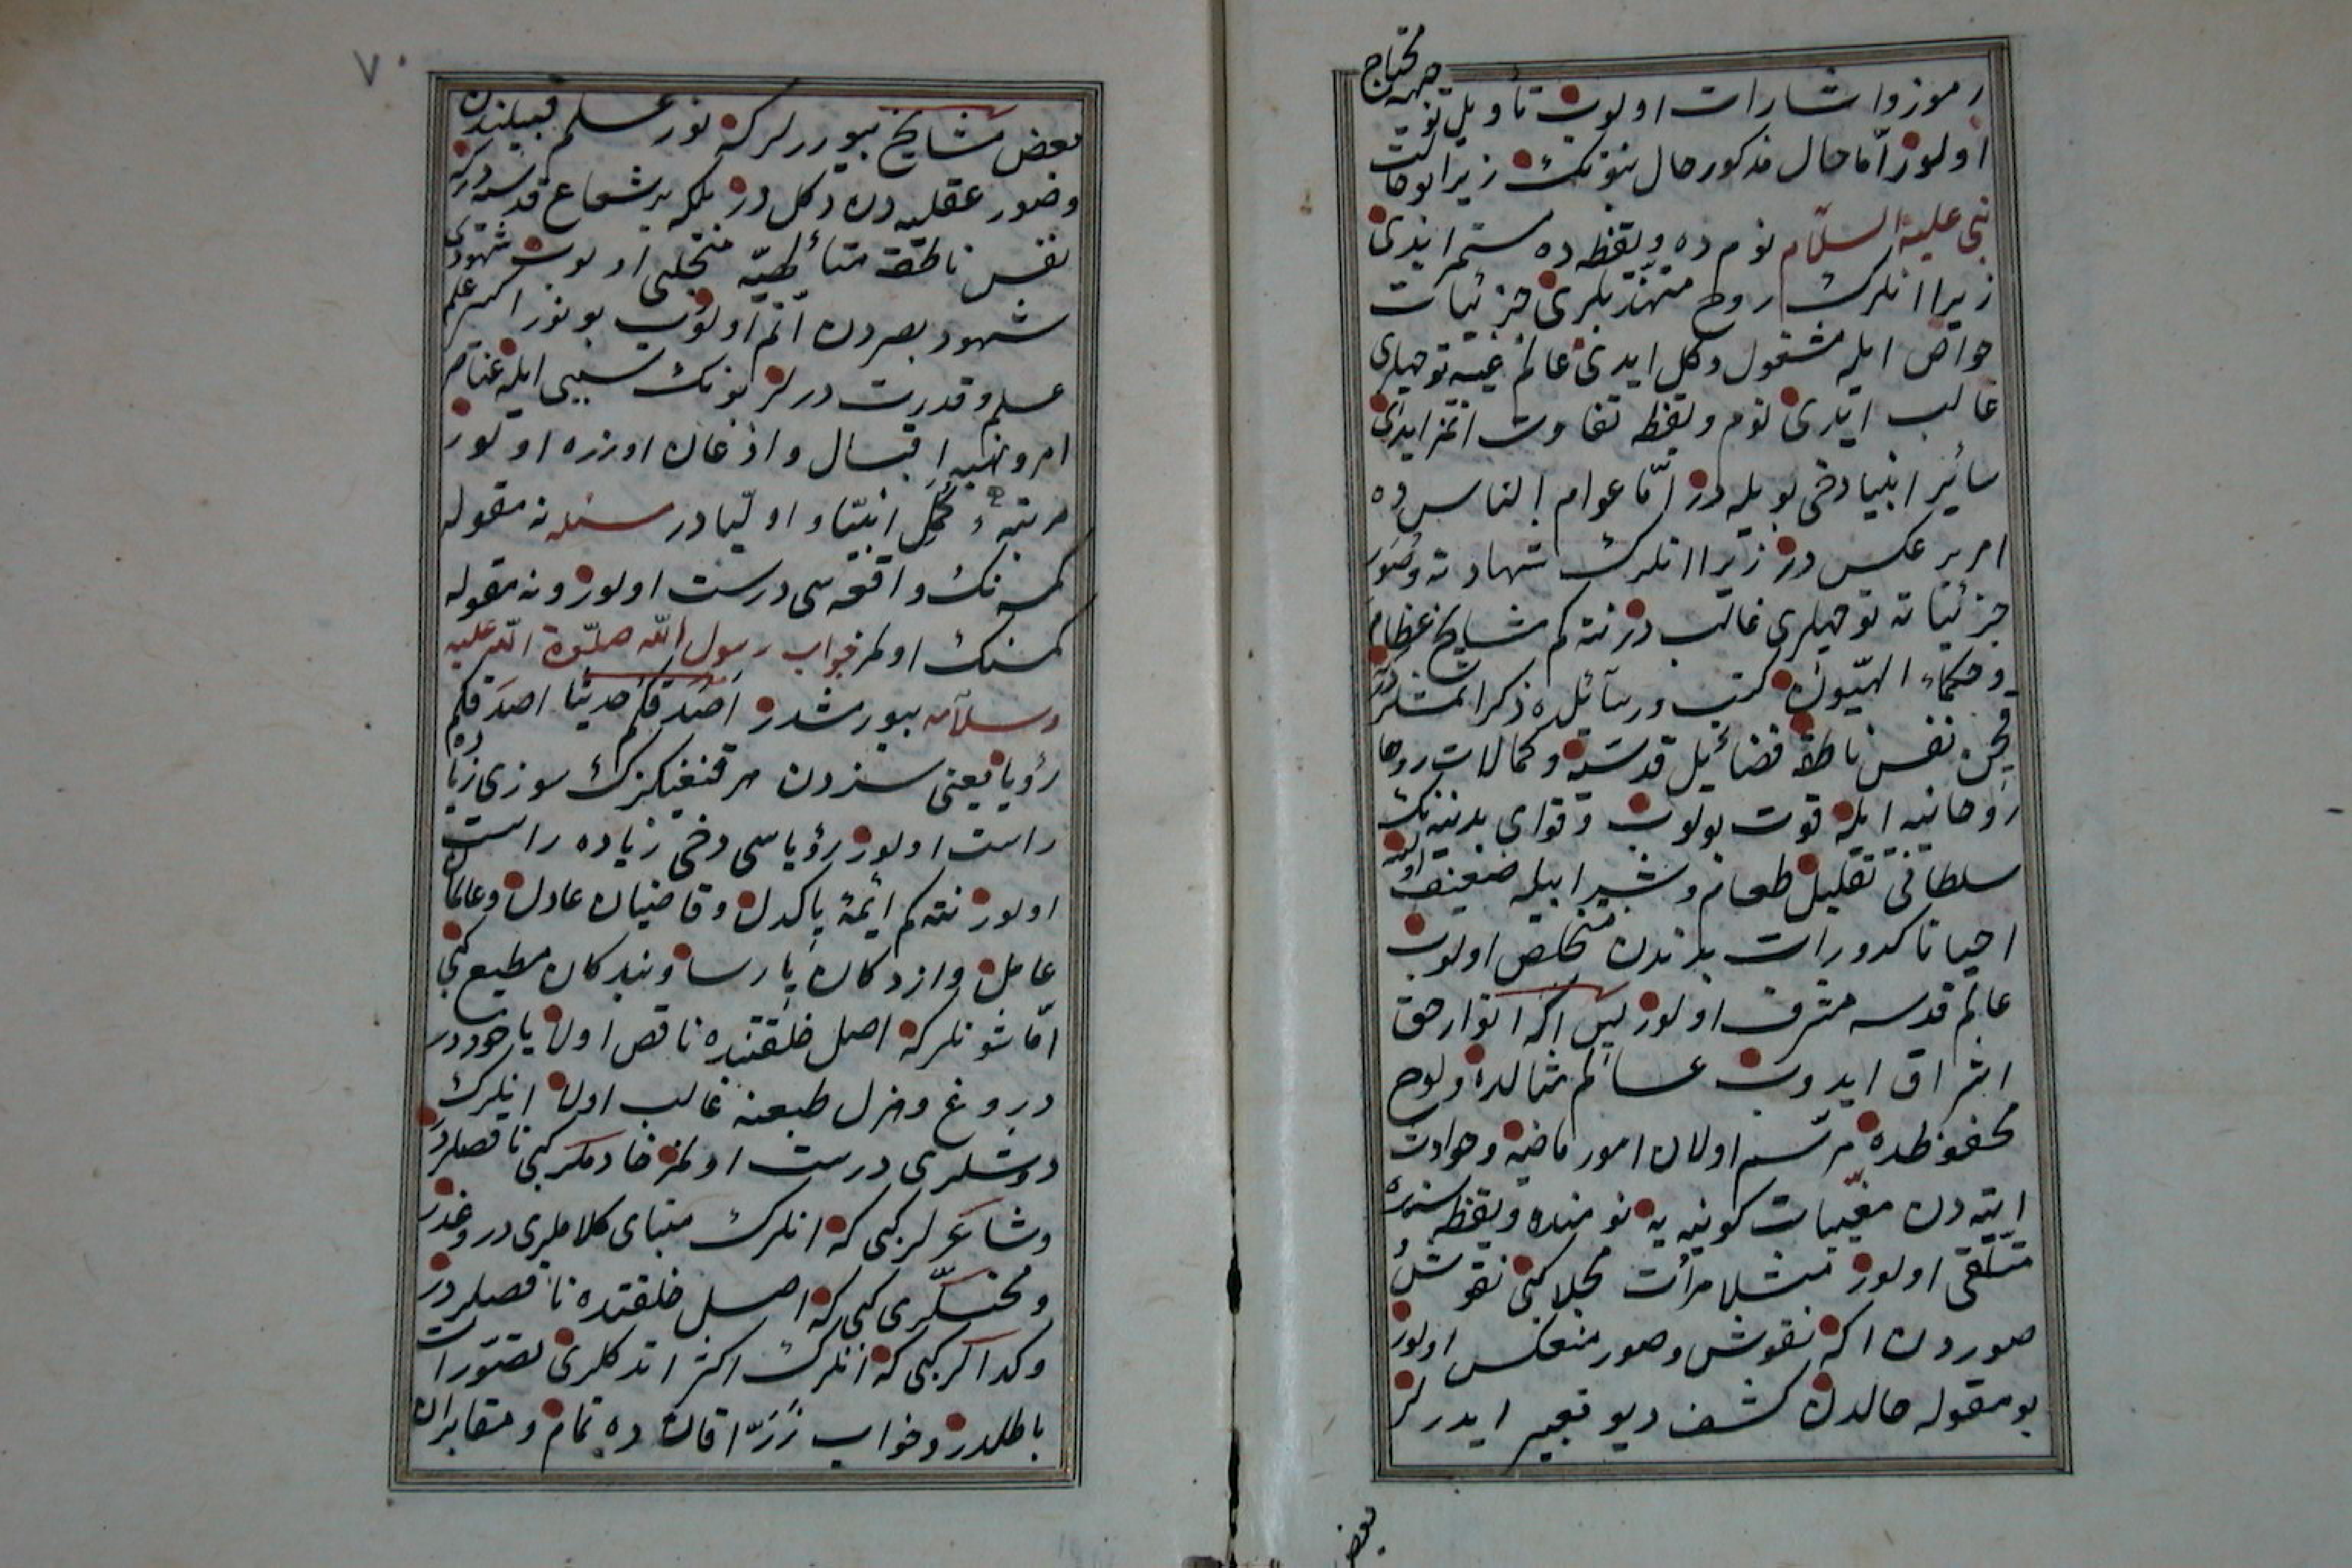 رموز و اشارات اولوب تأویل و توجیهه محتاج
اولور امّا حال مذکور حال نبوّتك زیرا بو حالت
نبی علیه السلام نوم ده و یقظه ده مستمر ایدی
زیرا انلرك روح متهلری جزئیات
حواص ایله مشغول دکل ایدی عالم غیبه توجهلری
غالب ایدی نوم و یقظه تفاوت اتمز ایدی
سائر انبیا دخی بویله در امّا عوام الناس ده
امر بر عکس در زیرا انلرك شهادته و صور
جزئیاته توجهلری غالب در نته کم مشایخ عظام
و حکماء الهیّون کتب و رسائلده ذکر اتمشلردر
قچن نفس ناطقه فضائل قدسیّه و کمالات روحا
روحانیه ایله قوت بولوب و قوای بدنیه نك
سلطانی تقلیل طعام و شراب ایله ضعیف اولسه
احیانا کدورات بدندن متخلص اولوب
عالم قدسه مشرف اولور پس اکا انوار حق
اشراق ایدوب عالم مثالده و لوح
محفوظده مرتسم اولان امور ماضیه و حوادث
اتیه دن مغیبات کونیه یه نومنده و یقظه سنده
متلقی اولور مثلا مرآت مجلا کبی نقوش
صور دن اکا نقوش و صور منعکس اولور
بو مقوله حالدن کشف دیو تعبیر ایدرلر
بعض
٧٠
بعض مشایخ بیوررلر که نور علم قبیلندن
و صور عقلیه دن دکل در بلکه بر شعاع قدسیدر که
نفس ناطقه متألهیّه متجلی اولوب شهودی
شهود بصردن اتم اولوب بو نور اکسیر علم
علم و قدرت درلر بونك سببی ایله عناصر
امر و نهیه اقبال و اذعان اوزره اولور
مرتبه ء کمّل انبیا و اولیا در مسئله نه مقوله
کمسه نك واقعه سی درست اولور و نه مقوله
کمسنك اولمز جواب رسول الله صلوة الله علیه
و سلامه بیورمشدر اصدقکم حدیثا اصدقکم
رؤیا یعنی سزدن هر قنغیکزك سوزی زیاده
راست اولور رؤیاسی دخی زیاده راست
اولور نته کم ائمهٔ پاکدل و قاضیان عادل و عالمان
عامل و ازدکان پارسا و بندکان مطیع کبی
امّا شونلر که اصل خلقتنده ناقص اولا یاخود در
دروغ و هزل طبعنه غالب اولا انلرك
دوشلری درست اولمز خادملر کبی ناقصلردر
و شاعرلر کبی که انلرك مبنای کلاملری دروغدر
و مخنثلری کبی که اصل خلقتده ناقصلردر
و کدالر کبی که انلرك اکثر اندکلری تصورات
باطلدر و خواب زرّاقان ده تمام و مقابران